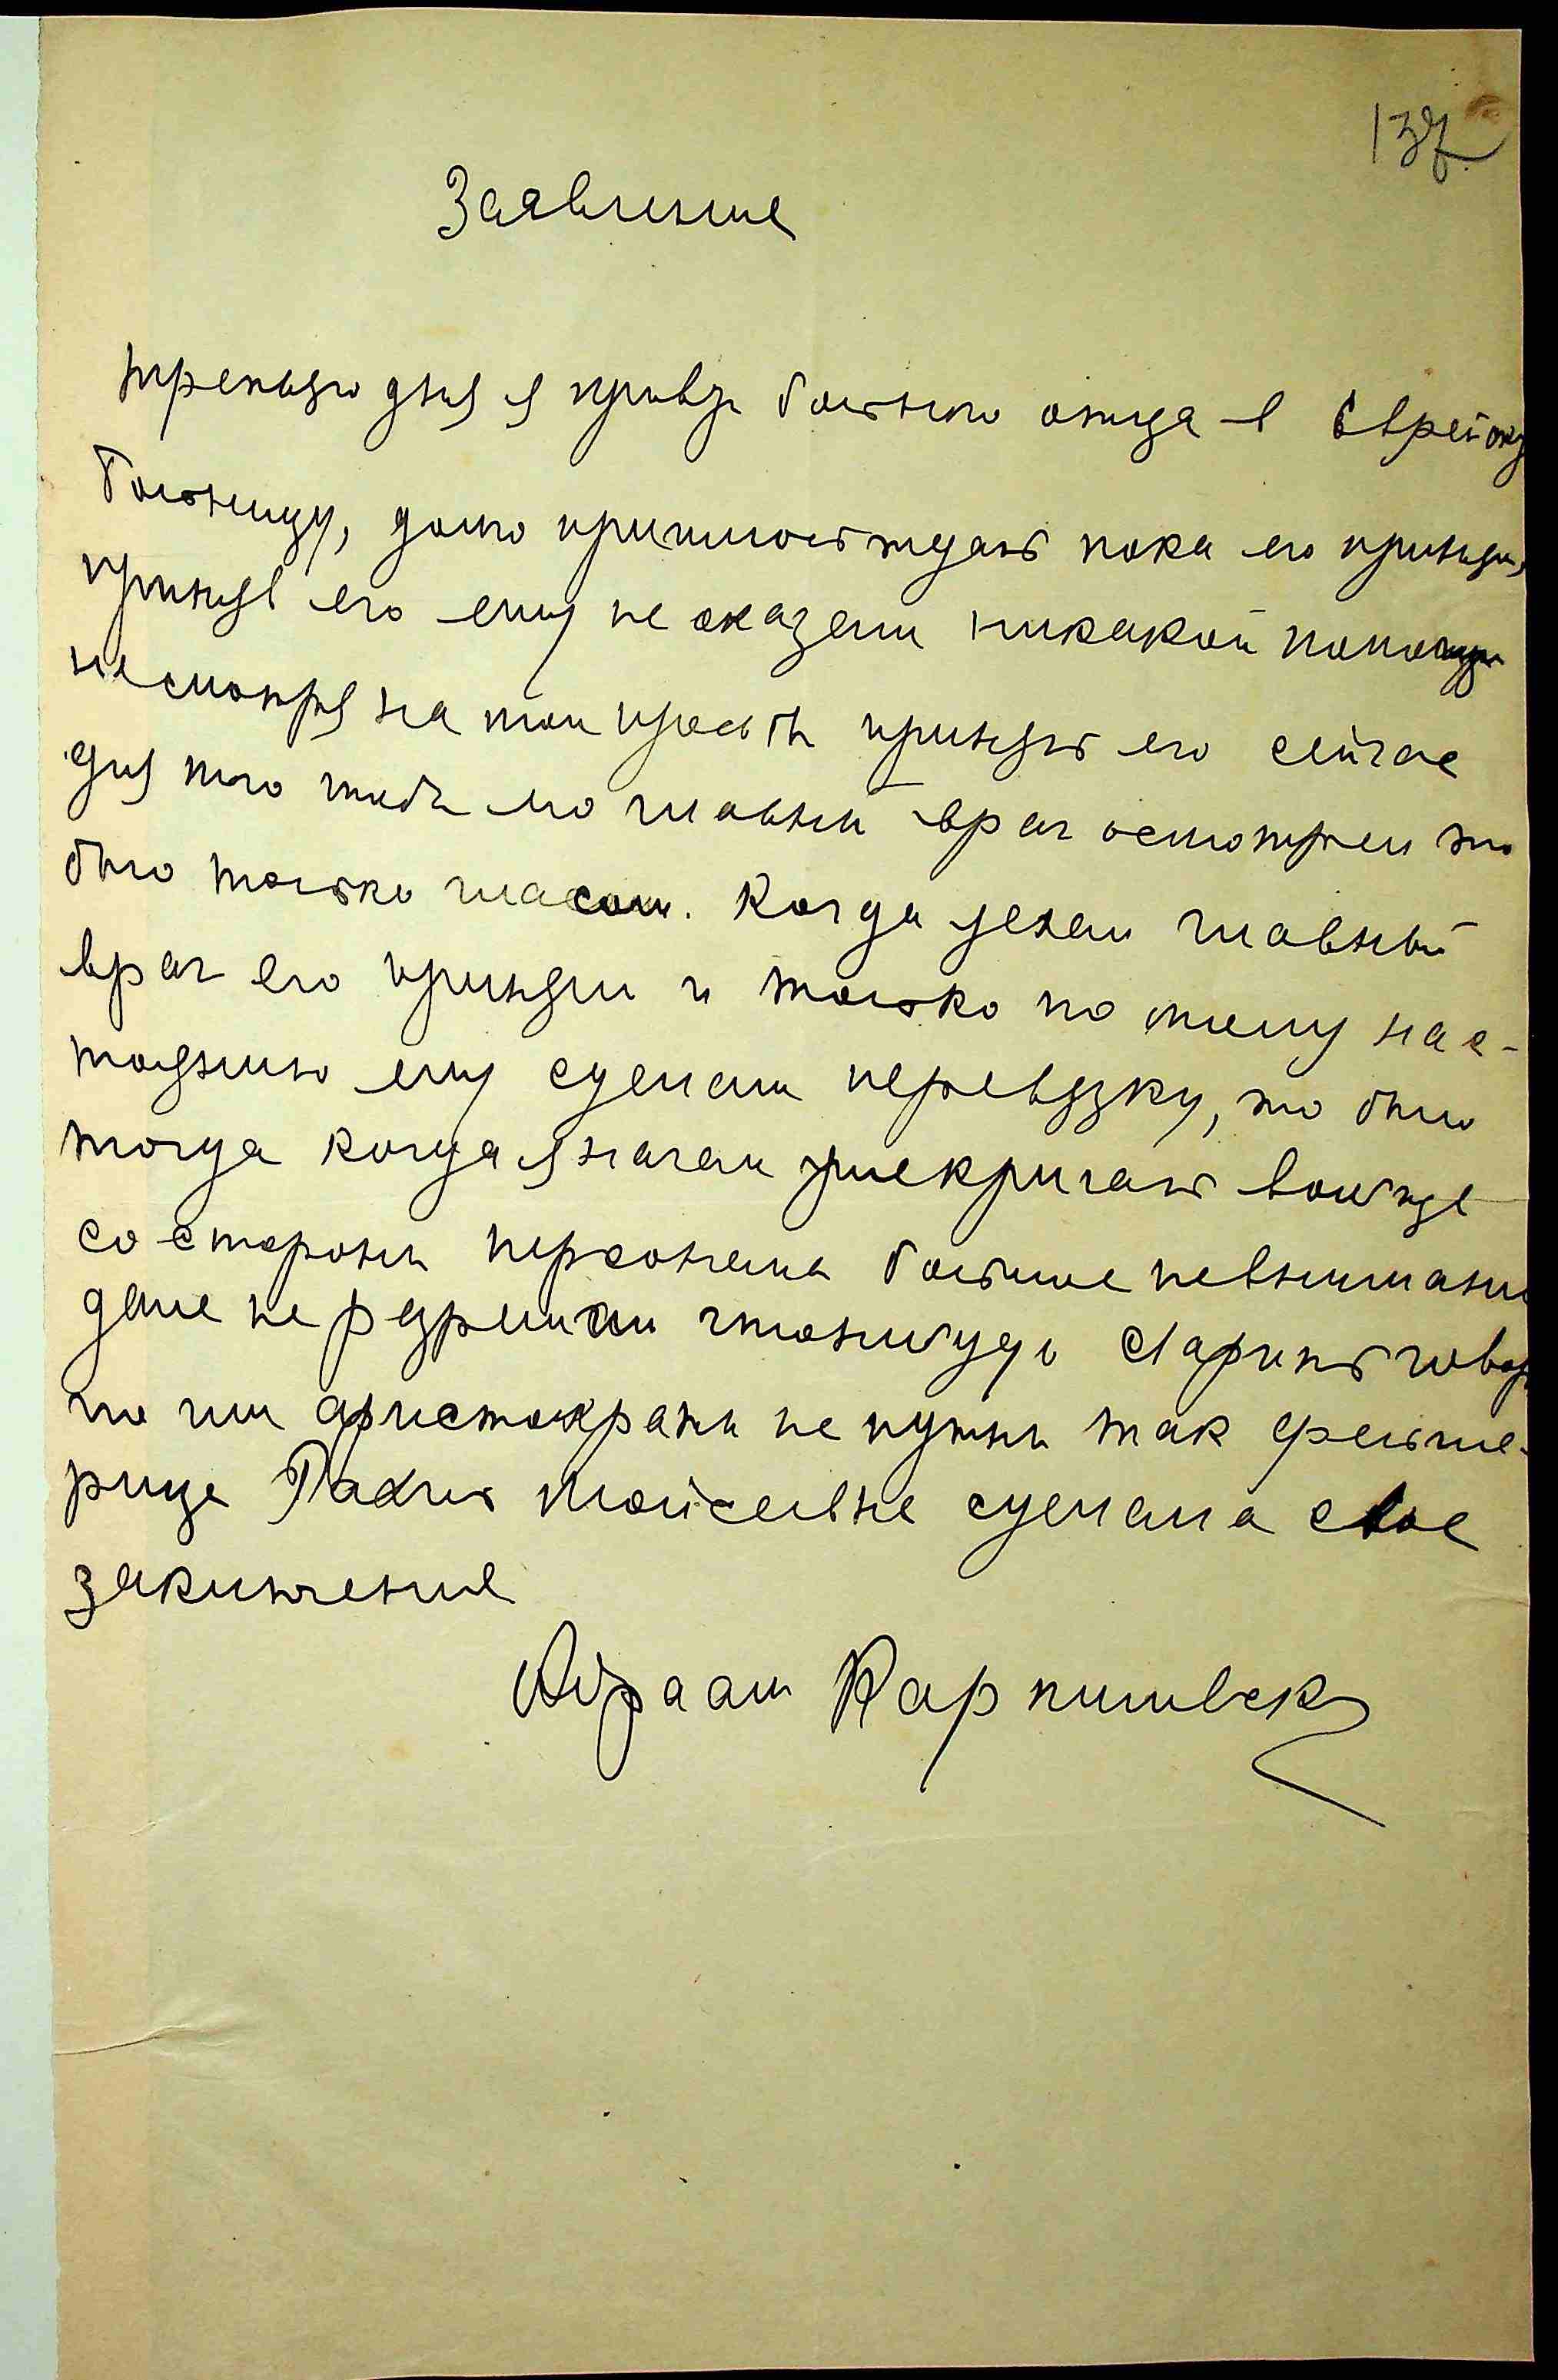 137
Заявление
третьяго дня я привз больного отца в Еврейску
больницу, долго пришлось ждать пока его приняли,
приняв его ему не оказали никакой помощи
несмотря на мои просьбы принять его сейчас
для того чтобы его главный врач осмотрел это
было только гласом. Когда уехал главный
врач его приняли и только по моему нас-
тоянию ему сделали перевязку, это было
тогда когда я начал уже кричать вообще
со стороны персонала большое невнимани
даже не разрешили чтонибудь сварить говор
что им аристократы не нужны так фельдше-
рица Рахиль Мойсеевне сделала свое
заключение
Абраам Карпиловск